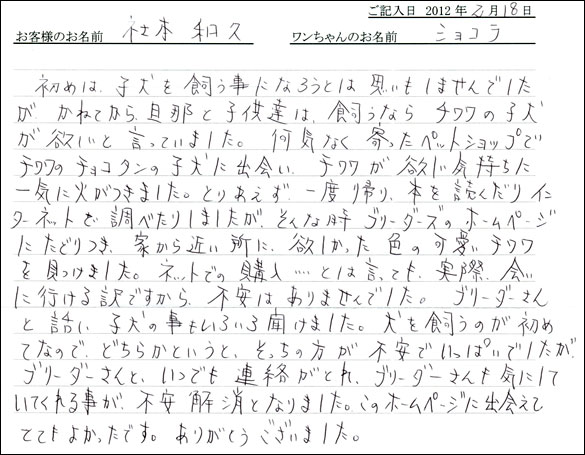 ご記入日 2012年2月18日
お客様のお名前 社本 和久 ワンちゃんのお名前 ショコラ
初めは、子犬を飼う事になろうとは思いもしませんでした
が、かねてから旦那と子供達は、飼うなら チワワの子犬
が欲しいと言っていました。何気なく寄ったペットショップで
チワワのチョコタンの子犬に出会い、チワワが欲しい気持ちに
一気に火がつきました。とりあえず、一度帰り、本を読んだりイン
ターネットで調べたりしましたが、そんな時ブリーダーズのホームページ
にたどりつき、家から近い所に、欲しかった色の可愛いチワワ
を見つけました。ネットでの購入……とは言っても、実際、会い
に行ける訳ですから、不安はありませんでした。ブリーダーさん
と話し、子犬の事もいろいろ聞けました。犬を飼うのが初め
てなので、どちらかというと、そっちの方が不安でいっぱいでしたが、
ブリーダーさんと、いつでも連絡がとれ、ブリーダーさんも気にして
いてくれる事が、不安解消となりました。このホームページに出会えて
とてもよかったです。ありがとうございました。